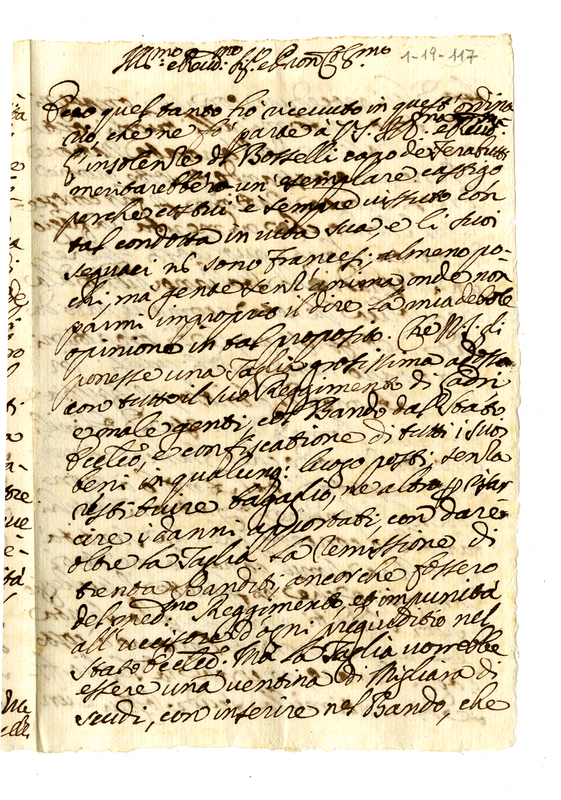 Ill.mo e Rev.mo Sig.r e Pron Col.mo
1-19-117
Ecco quel tanto hò ricevuto in quest' ordina
rio, che ne fò parte a V.S. Ill.ma e Rev.ma
L'insolenze di Bosselli capo de
meritarebbero un' esemplare castigo
perche costui è sempre vissuto con
tal condotta in vita sua e li suoi
seguaci nò sono Francesi, almeno po-
chi, mà gente senz' anima onde non
parmi improprio il dire la mia debole
opinione in tal proposito. Che N.S. di
ponesse una Taglia grossissima adosso
con tutto il suo Reggimento di ladri
e male genti, col Bando dal Stato
Eccles.o, e confiscatione di tutti i suoi
beni in qualunq: luogo posti, senza
restituire bagaglio, ne altro per risar
cire i danni apportati, con dare
oltre la Taglia la remissione di
trenta Banditi, ancorche fossero
del med.mo Reggimento, et impunità
all' uccisore d'ogni pregiuditio nel
Stato Eccles.o. Mà la Taglia vorrebbe
essere una ventina di Migliara di
scudi, con inserire nel Bando, che